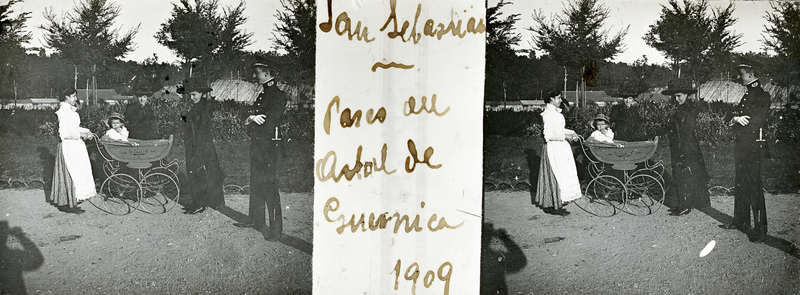 San Sebastián
Paseo del
Arbol de
Guernica
1909